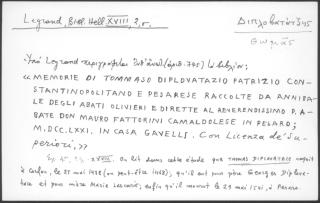 Legrand, Bibl. Hell. XVIII, 2, σ.
Διπλοβατάτζης
Θωμᾶς
Ὑπὸ Legrand περιγράφεται (ἀριθ. 745) τὸ βιβλίον:
«MEMORIE DI TOMMASO DIPLOVATAZIO PATRIZIO CON-
STANTINOPOLITANO E PESARESE RACCOLTE DA ANNIBA-
LE DEGLI ABATI OLIVIERI E DIRETTE AL REVERENDISSIMO P. A-
BATE DON MAURO FATTORINI CAMALDOLESE IN PESARO;
M,DCC,LXXI, IN CASA GAVELLI. Con Licenza de' Su-
periori,»
XVIII. On lit dans cette étude que THOMAS DIPLOVATACE naquit
à Corfou, le 25 mai 1468 (ou peut-être 1468); qu'il eut pour père Georges Diplova-
tace et pour mère Marie Lascaris; enfin qu'il mourut le 29 mai 1541, à Pesaro.